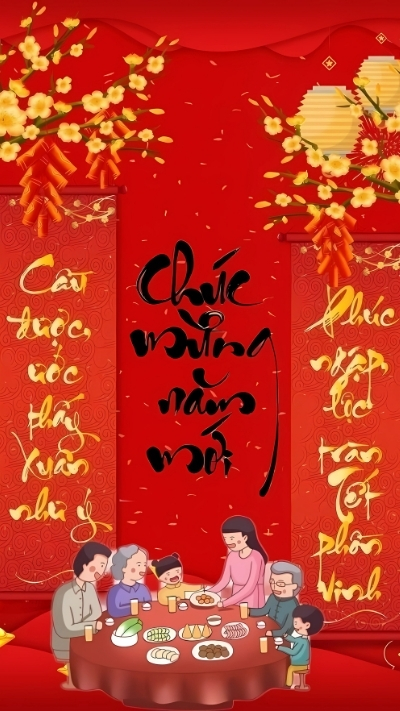 Cầu
được,
ước
thấy
Xuân
như ý
Chúc
mừng
năm
mới
Phúc
ngập
lộc
tràn
Tết
phồn
Vinh